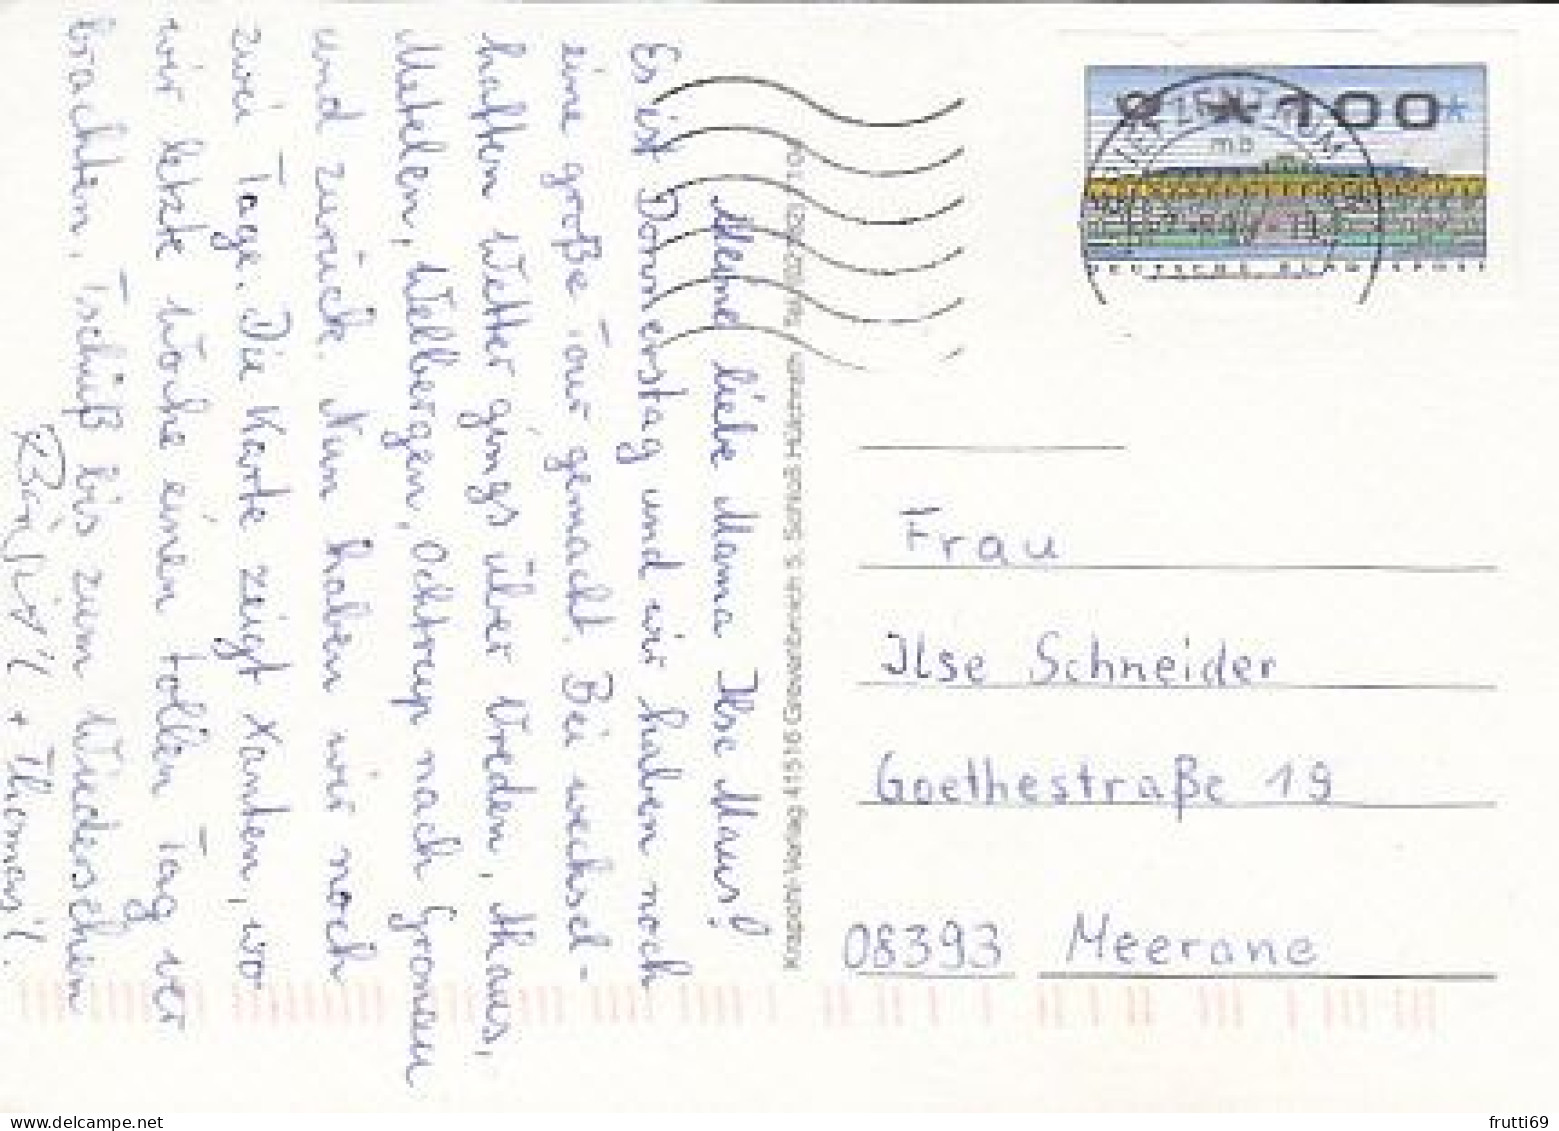 Meine liebe Mama Ilse Maus!
Es ist Donnerstag und wir haben noch
eine große Tour gemacht. Bei wechsel-
haften Wetter gings über Vreden, Ahaus,
Metelen, Welbergen, Ochtrup nach Gronau
und zurück. Nun haben wir noch
zwei Tage. Die Karte zeigt Xanten, wo
wir letzte Woche einen tollen Tag ver
brachten. Tschüß bis zum Wiedersehen
+ Thomas
Krapohl-Verlag 41516 Grevenbroich 5. Schloß Hülchrath
* 100
DEUTSCHE BUNDESPOST
BRIEFZENTRUM
mb
Frau
Ilse Schneider
Goethestraße 19
08393 Meerane
frutti69